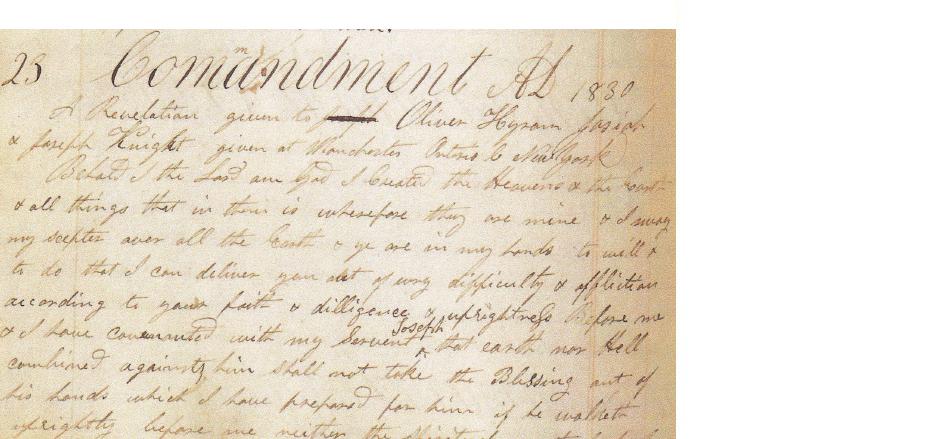 23 Commandment AD 1830
A Revelation given to Oliver Hyram Josiah
& Joseph Knight given at Manchester Ontario C New York
Behold I the Lord am God I Created the Heavens & the Earth
& all things that in them is wherefore they are mine & I sway
my scepter over all the Earth & ye are in my hands to will &
to do that I can deliver you out of evry difficulty & affliction
according to your faith & dilligence & uprightness Before me
& I have covenanted with my Servent Joseph that earth nor Hell
combined against him shall not take the Blessing out of
his hands which I have prepared for him if he walketh
uprightly before me neither the